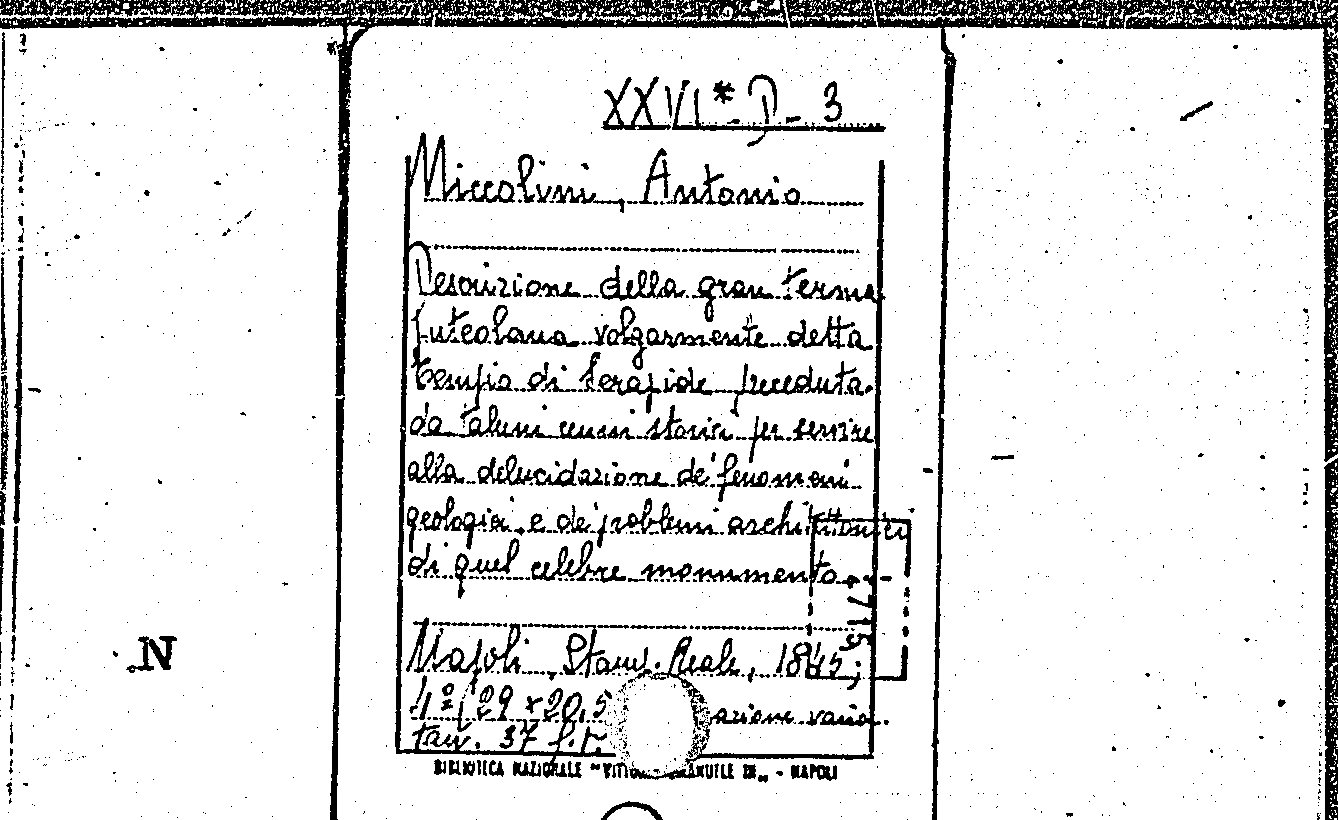 XXVI * D - 3
Niccolini, Antonio
Descrizione della gran terma
puteolana volgarmente detta
tempio di Serapide preceduta
da taluni cenni storici per servire
alla delucidazione de' fenomeni
geologici e de' problemi architettonici
di quel celebre monumento.
4715
Napoli, Stamp. Reale, 1845;
4º (29 x 20,5 azione varia.
tav. 37 f.t.
BIBLIOTECA NAZIONALE "VITTO MANUELE III" - NAPOLI
N